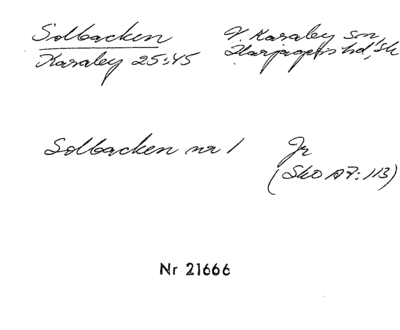 Solbacken
Karaby 25:45
V. Karaby sn,
Harjagers hd, Sk
Solbacken nr 1
Jr
(Sko A7:113)
Nr 21666